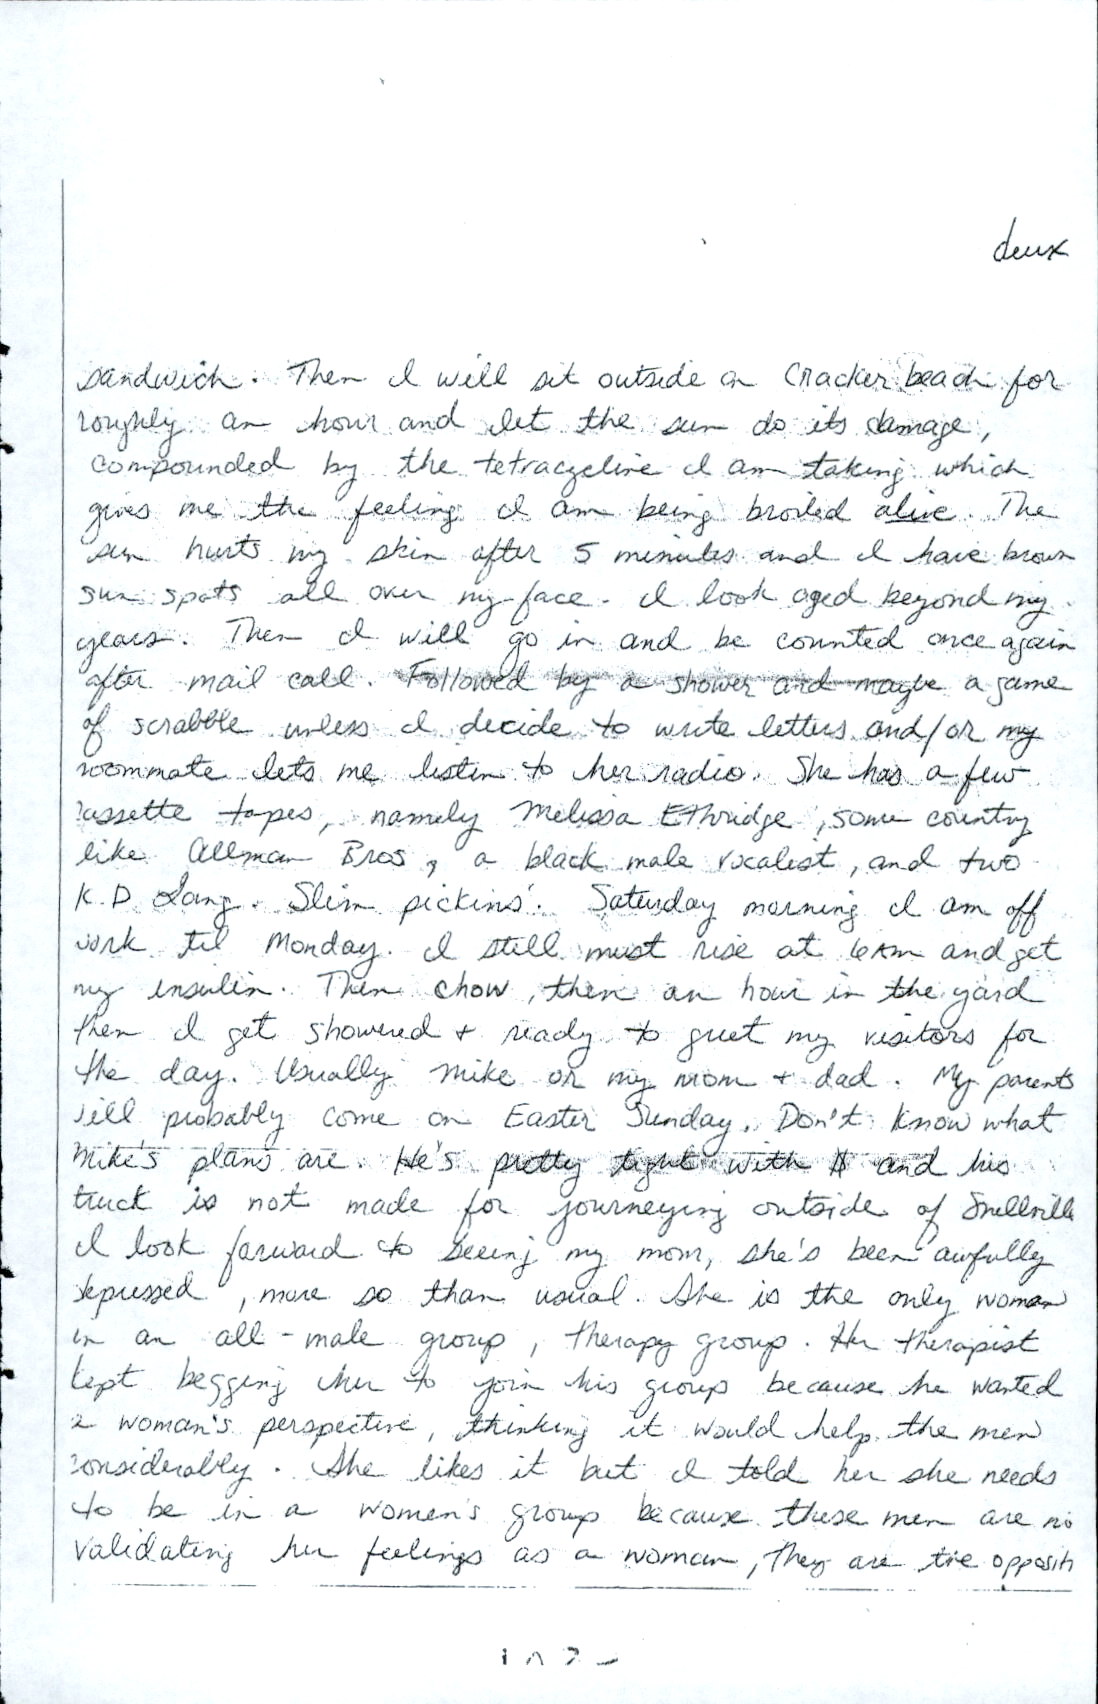 deux
sandwich. Then I will sit outside on Cracker beach for
roughly an hour and let the sun do its damage,
compounded by the tetracycline I am taking which
gives me the feeling I am being broiled alive. The
sun hurts my skin after 5 minutes and I have brown
sun spots all over my face. I look aged beyond my
years. Then I will go in and be counted once again
after mail call. Followed by a shower and maybe a game
of scrabble unless I decide to write letters and/or my
roommate lets me listen to her radio. She has a few
cassette tapes, namely Melissa Ethridge, some country
like Allman Bros, a black male vocalist, and two
K.D. Lang. Slim pickins'. Saturday morning I am off
work til Monday. I still must rise at 6AM and get
my insulin. Then chow, then an hour in the yard
then I get showered + ready to greet my visitors for
the day. Usually Mike or my mom + dad. My parents
will probably come on Easter Sunday. Don't know what
Mike's plans are. He's pretty tight with $ and his
truck is not made for journeying outside of Snellville
I look forward to seeing my mom, she's been awfully
depressed, more so than usual. She is the only woman
in an all-male group, therapy group. Her therapist
kept begging her to join his group because he wanted
a woman's perspective, thinking it would help the men
considerably. She likes it but I told her she needs
to be in a women's group because these men are no
validating her feelings as a woman, they are the opposit